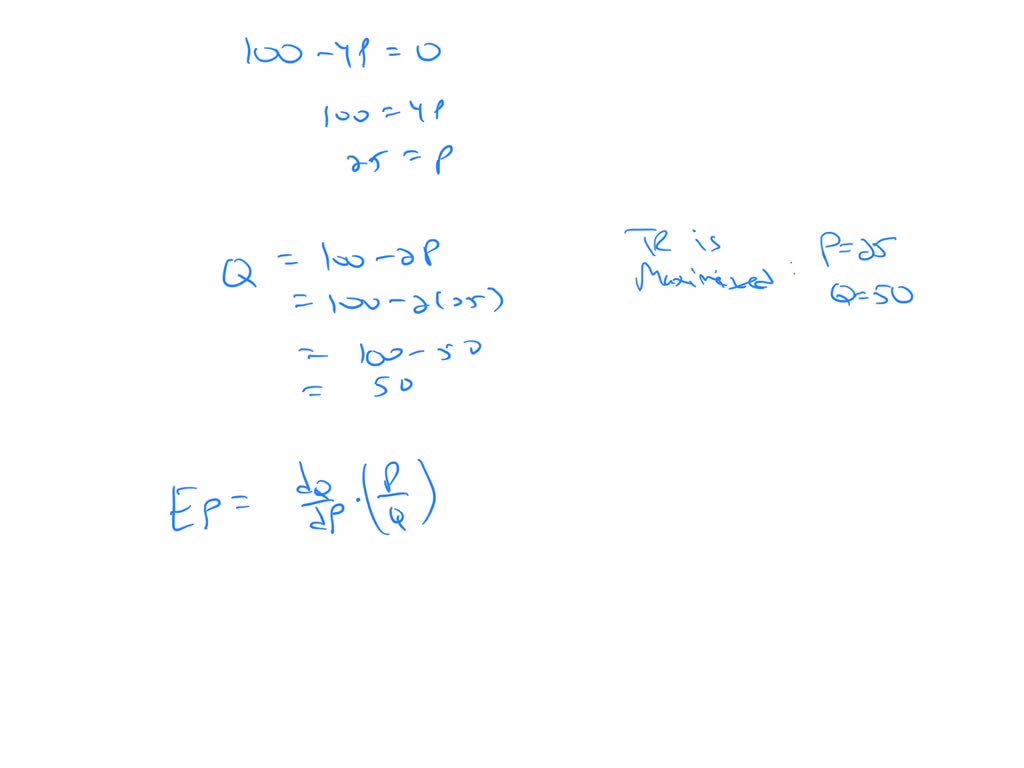 100 - 4P = 0
100 = 4P
25 = P
Q = 100 - 2P
= 100 - 2(25)
= 100 - 50
= 50
TR is
Maximized : P=25
Q=50
EP = dQ/dP · (P/Q)